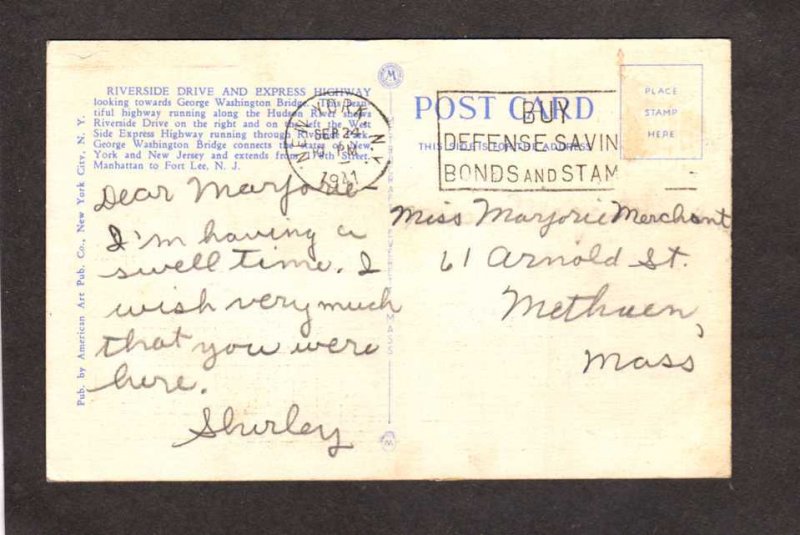 RIVERSIDE DRIVE AND EXPRESS HIGHWAY
looking towards George Washington Bridge. This beau
tiful highway running along the Hudson River shows
Riverside Drive on the right and on the left the West
Side Express Highway running through Riverside Park.
George Washington Bridge connects the states of New
York and New Jersey and extends from 178th Street,
Manhattan to Fort Lee, N. J.
Dear Marjorie
I'm having a
swell time. I
wish very much
that you were
here.
Shirley
Pub. by American Art Pub. Co., New York City, N. Y.
M
NEW YORK, N.Y.
SEP 24
PM
1941
POST CARD
THIS SIDE IS FOR THE ADDRESS
BUY
DEFENSE SAVIN
BONDS AND STAM
PLACE
STAMP
HERE
Miss Marjorie Merchant
61 Arnold St.
Methuen,
Mass